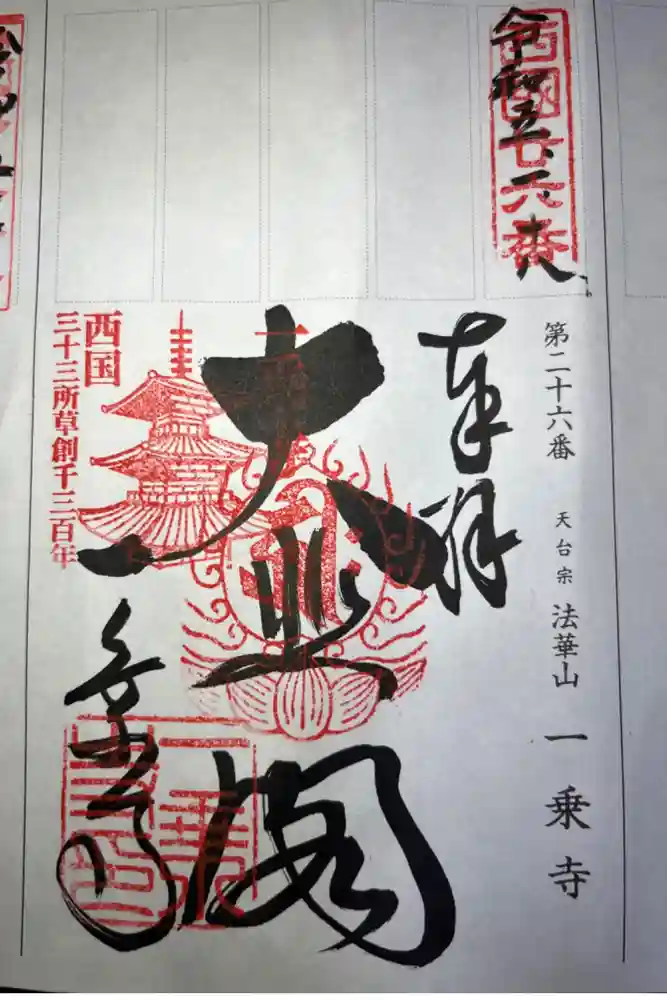 第二十六番 天台宗 法華山 一乗寺
西国廿六番
奉拝
大悲閣
一乗寺
西国
三十三所草創千三百年